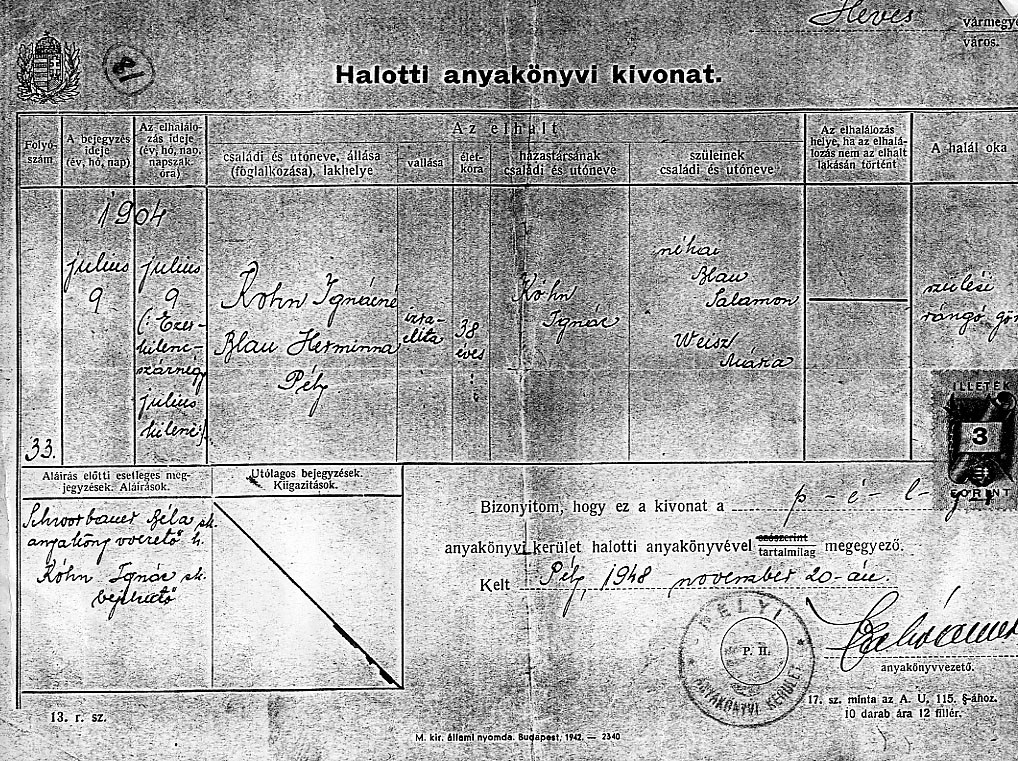 Heves vármegye
város.
81
Halotti anyakönyvi kivonat.
Folyó-
szám
A bejegyzés
ideje
(év, hó, nap)
Az elhalálo-
zás ideje
(év, hó, nap,
napszak,
óra)
Az elhalt
családi és utóneve, állása
(foglalkozása), lakhelye
vallása
élet-
kora
házastársának
családi és utóneve
szüleinek
családi és utóneve
Az elhalálozás
helye, ha az elhalá-
lozás nem az elhalt
lakásán történt
A halál oka
33.
1904
július
9
július
9
(: Ezer-
kilenc-
száznégy
július
kilenc :)
Kohn Ignácné
Blau Herminna
Pély
izra-
elita
38
éves
Kohn
Ignác
néhai
Blau
Salamon
Weisz
Mária
szülési
rángó gör
ILLETÉK
3
FORINT
Aláírás előtti esetleges meg-
jegyzések. Aláírások.
Utólagos bejegyzések.
Kiigazítások.
Béla sk.
anyakönyvvezető h.
Kohn Ignác sk.
bejelentő
Bizonyítom, hogy ez a kivonat a p - é - l - y - i
anyakönyvi kerület halotti anyakönyvével szószerint
tartalmilag megegyező.
Kelt Pély, 1948 november 20-án.
PÉLYI
P. H.
ANYAKÖNYVI KERÜLET
anyakönyvvezető.
17. sz. minta az A. U. 115. §-ához.
10 darab ára 12 fillér.
13. r. sz.
M. kir. állami nyomda. Budapest, 1942. — 2340